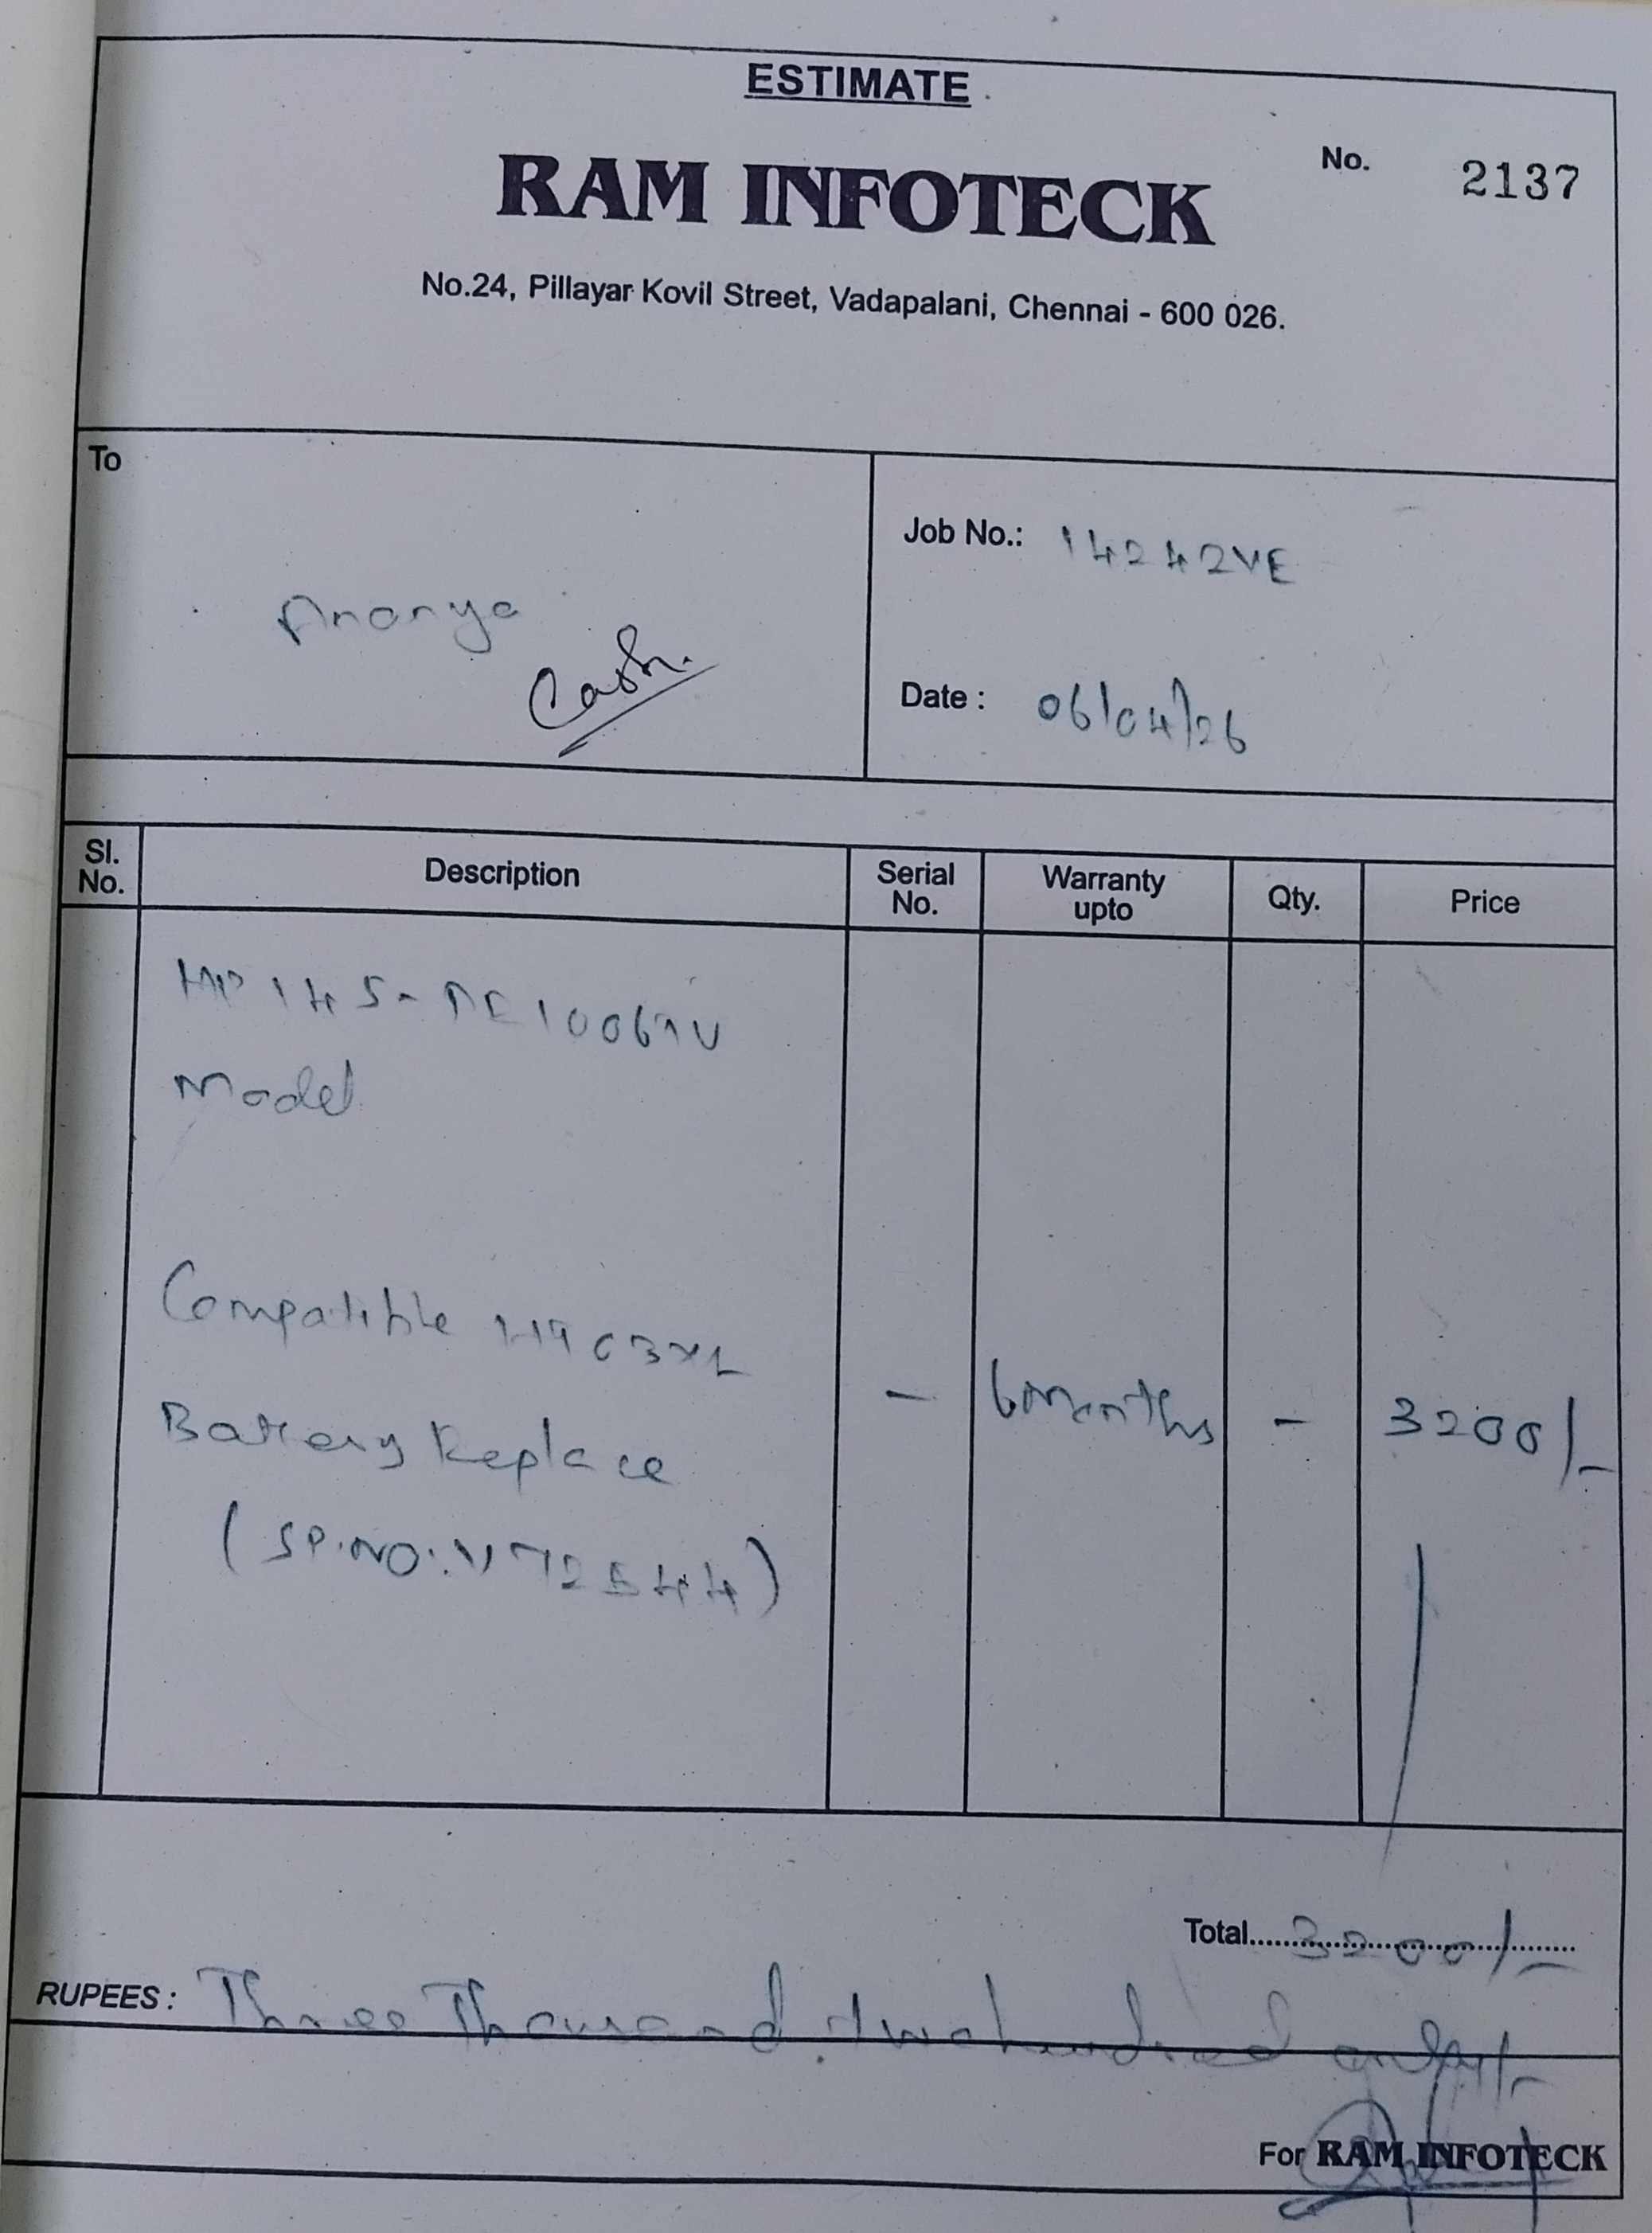 ESTIMATE
RAM INFOTECK
No. 2137
No.24, Pillayar Kovil Street, Vadapalani, Chennai - 600 026.
To
Ananya
Cash.
Job No.: 14242VE
Date : 06/04/26
Sl. No. Description Serial No. Warranty upto Qty. Price
Model
Compatible
Battery Replace - 6 months - 3200/-
(SP.NO:
Total 3200/-
RUPEES : Three Thousand two hundred only/-
For RAM INFOTECK